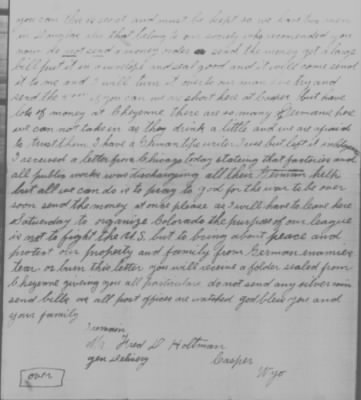 you can this is secret and must be kept so we have two men
in Douglas also that belong to our society who recomended you
now do not send a money order send the money get a large
bill put it in a envelope and seal good and it will come sealed
it to me and I will turn it over to our man here try and
send the if you can we are short here at Casper but have
lots of money at Cheyenne there are so many Germans here
we can not take in as they drink a little and we are afraid
to trust them I have a German life writer I was but left it
I received a letter from Chicago today stateing that factories and
all public works was discharging all their German help
but all we can do is to pray to god for the war to be over
soon send the money at once please as I will have to leave here
Saturday to organize Colorado the purpose of our league
is not to fight the U.S. but to bring about peace and
protect our property and family from German enamies
tear or burn this letter you will receive a folder sealed from
Cheyenne giveing you all particulars do not send any silver coin
send bills all post offices are watched god bless you and
your family
I remain
Mr Fred D Holtman
gen Delivery Casper
Wyo
over